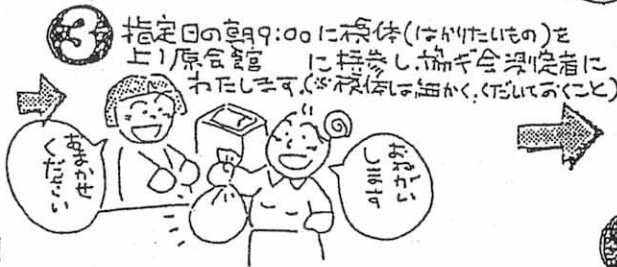 ③ 指定日の朝9:00に検体(はかりたいもの)を
上川原会館　に持参し、協ギ会測定者に
わたします。(※検体は細かく、くだいておくこと)
おまかせください
おねがいします